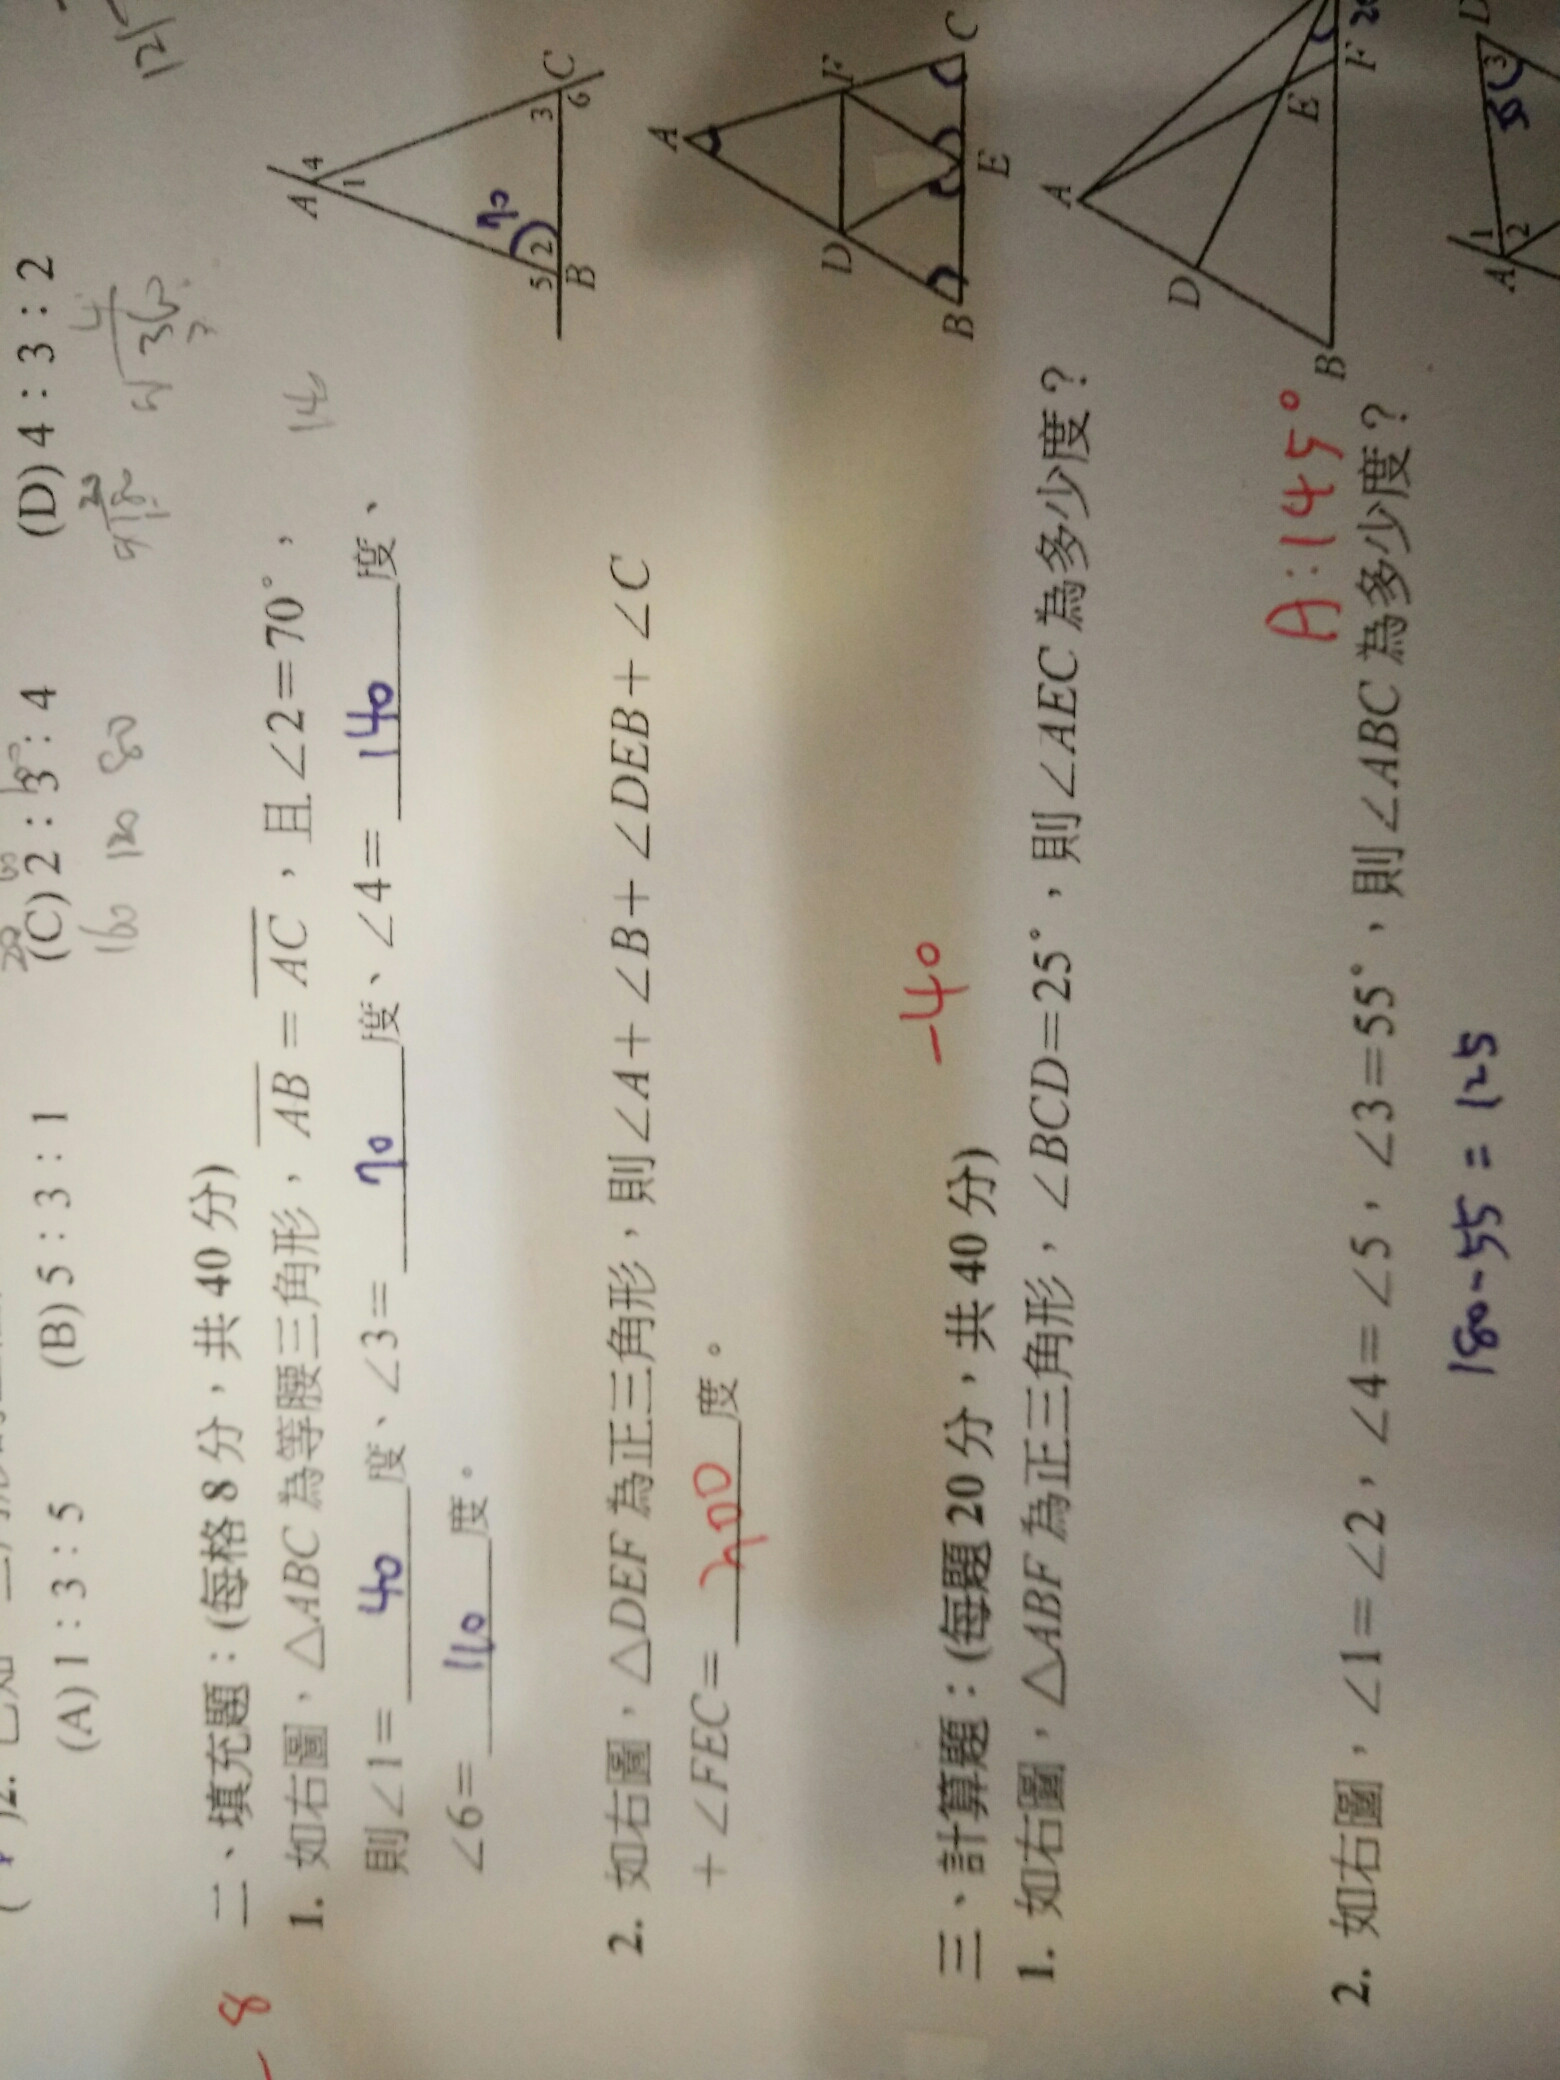 (A) 1 : 3 : 5 (B) 5 : 3 : 1 (C) 2 : 3 : 4 (D) 4 : 3 : 2
160 120 80
- 8
二、填充題：(每格 8 分，共 40 分)
1. 如右圖，△ABC 為等腰三角形，AB = AC，且∠2＝70°，
則∠1＝ 40 度、∠3＝ 70 度、∠4＝ 140 度、
∠6＝ 110 度。
A
4
1
70
5
2
3
6
B
C
2. 如右圖，△DEF 為正三角形，則∠A＋∠B＋∠DEB＋∠C
＋∠FEC＝ 300 度。
A
D
F
B
E
C
-40
三、計算題：(每題 20 分，共 40 分)
1. 如右圖，△ABF 為正三角形，∠BCD＝25°，則∠AEC 為多少度？
A
D
E
B
F
A：145°
2. 如右圖，∠1＝∠2，∠4＝∠5，∠3＝55°，則∠ABC 為多少度？
180-55 = 125
A
1
2
55
3
D